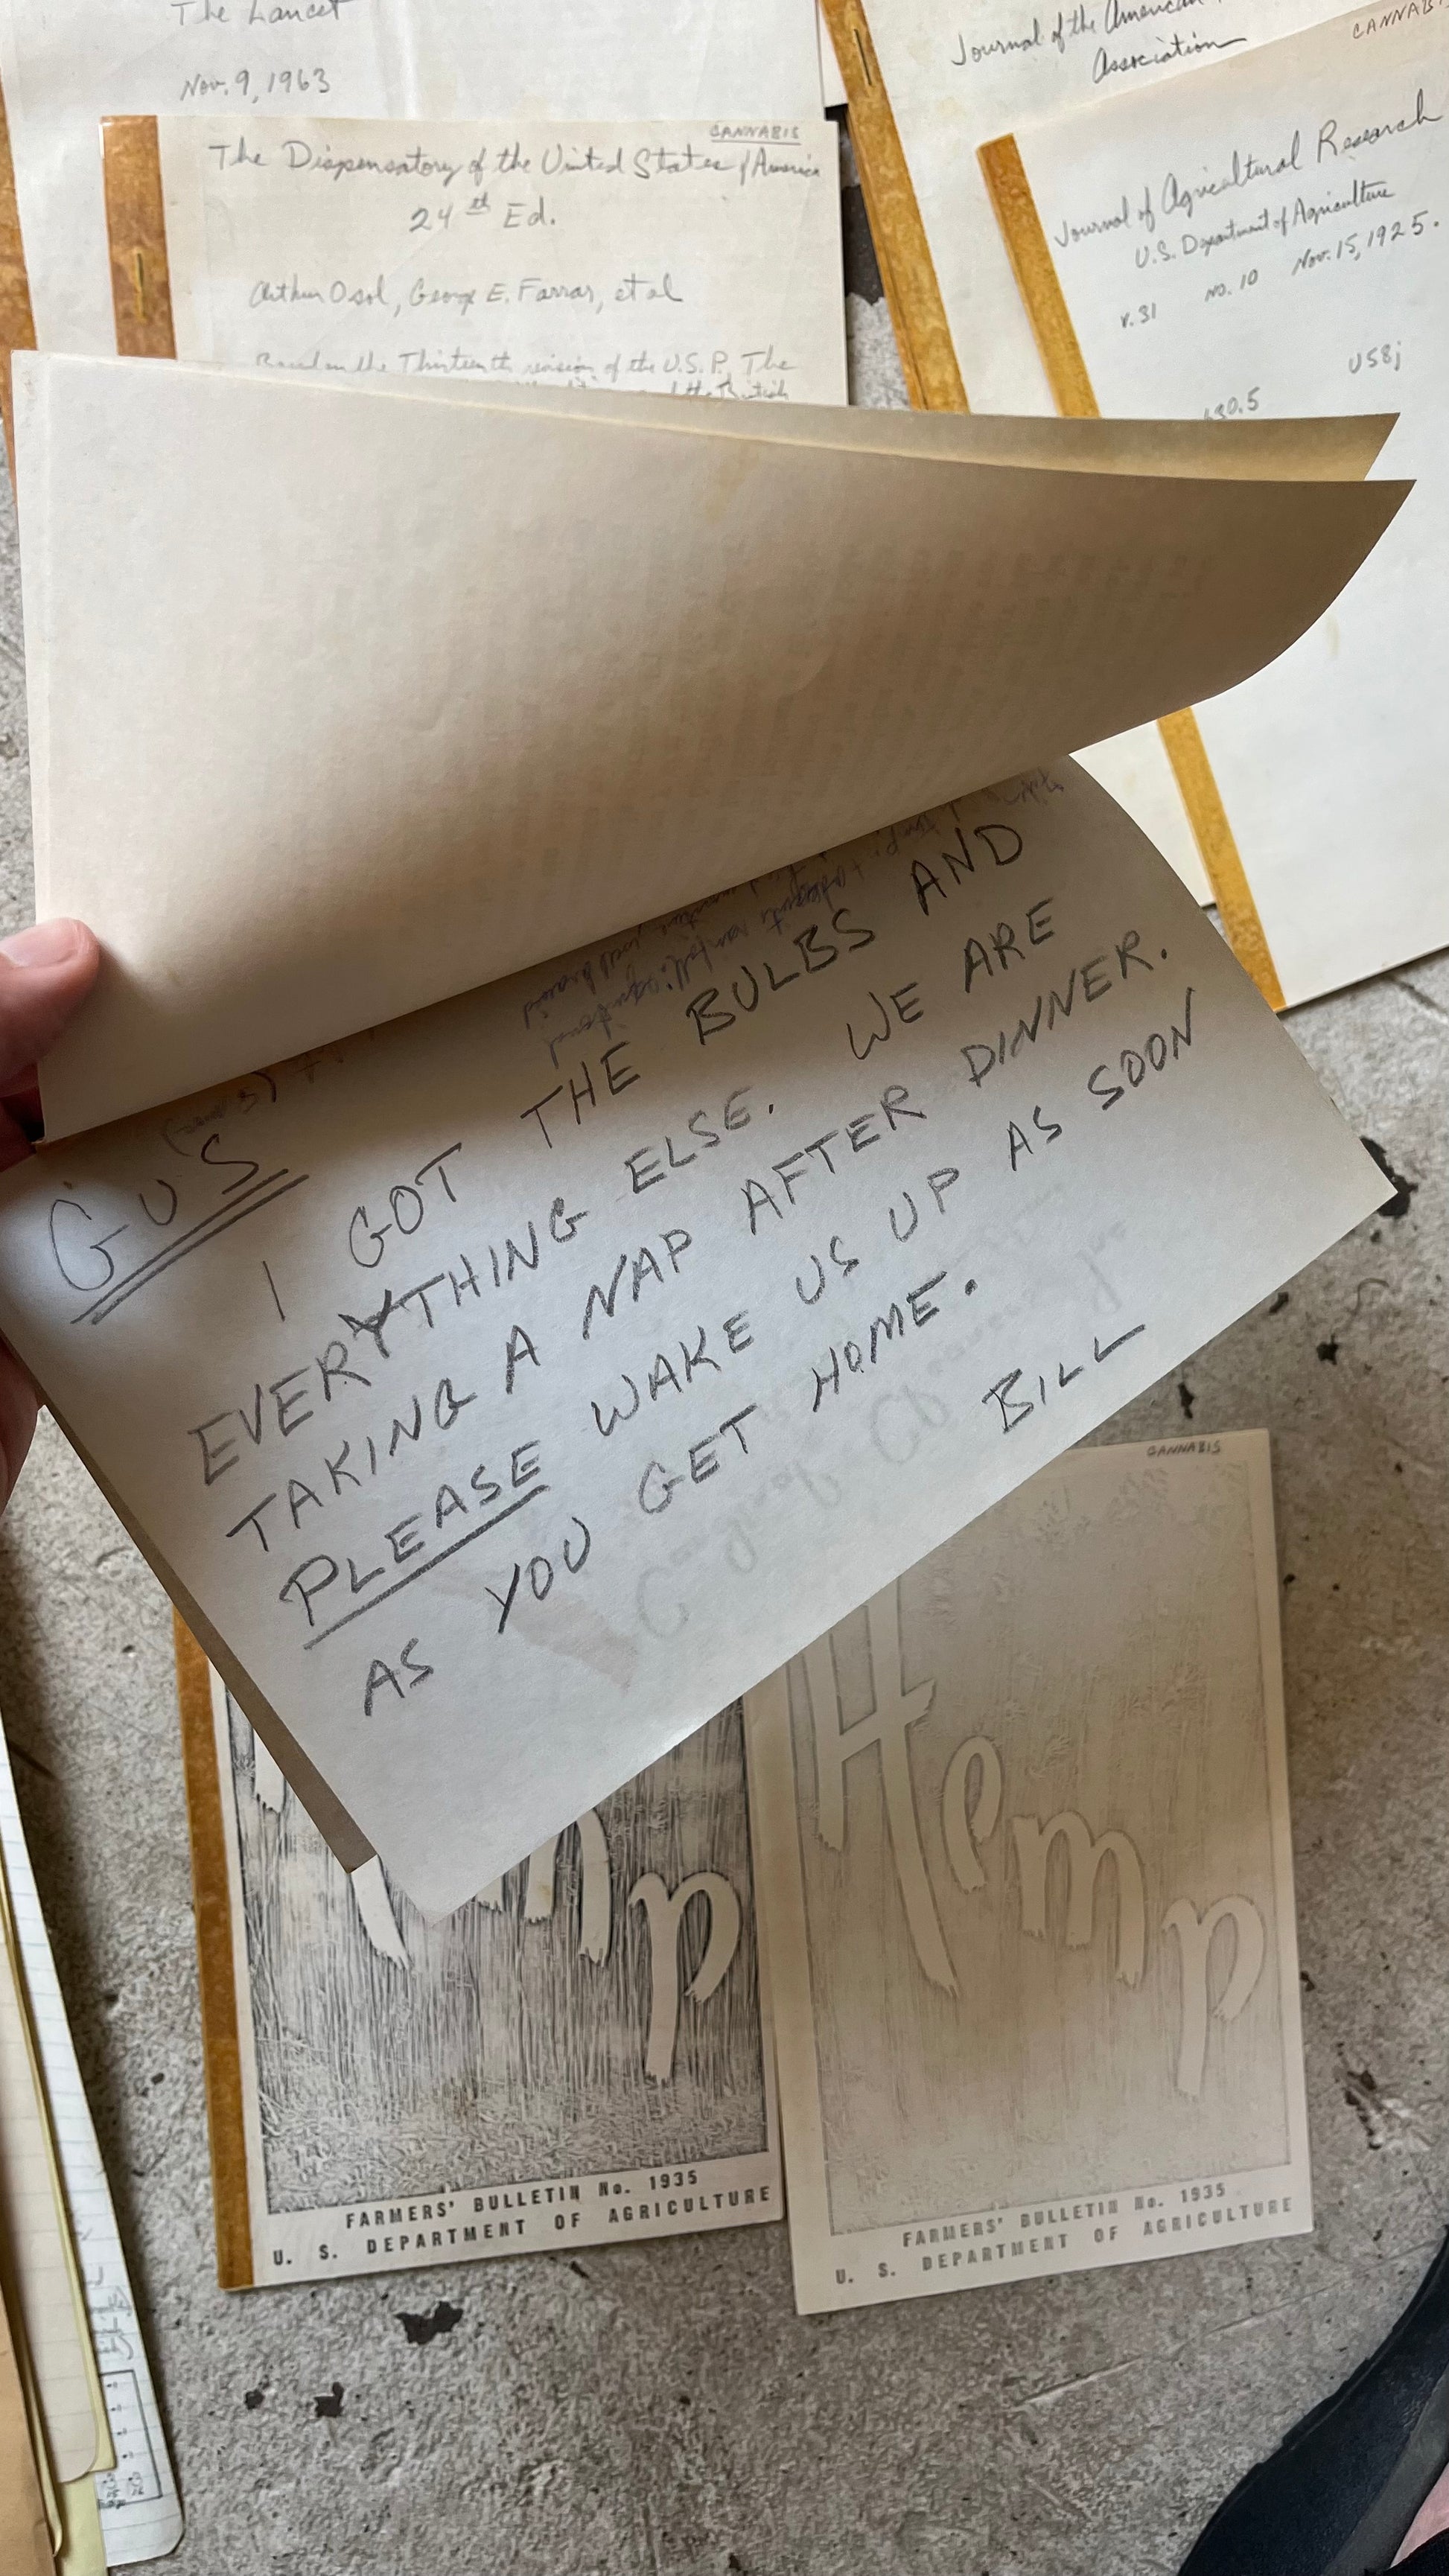 The Lancet
Nov. 9, 1963
CANNABIS
The Dispensatory of the United States of America
24th Ed.
Arthur Osol, George E. Farrar, et al
Based on the Thirteenth revision of the U.S.P. The
of the British
Journal of the American
Association
CANNABIS
Journal of Agricultural Research
U.S. Department of Agriculture
v. 31 no. 10 Nov. 15, 1925.
630.5 US8j
GUS
I GOT THE BULBS AND
EVERYTHING ELSE. WE ARE
TAKING A NAP AFTER DINNER.
PLEASE WAKE US UP AS SOON
AS YOU GET HOME.
BILL
mp
FARMERS' BULLETIN No. 1935
U. S. DEPARTMENT OF AGRICULTURE
CANNABIS
Hemp
FARMERS' BULLETIN No. 1935
U. S. DEPARTMENT OF AGRICULTURE